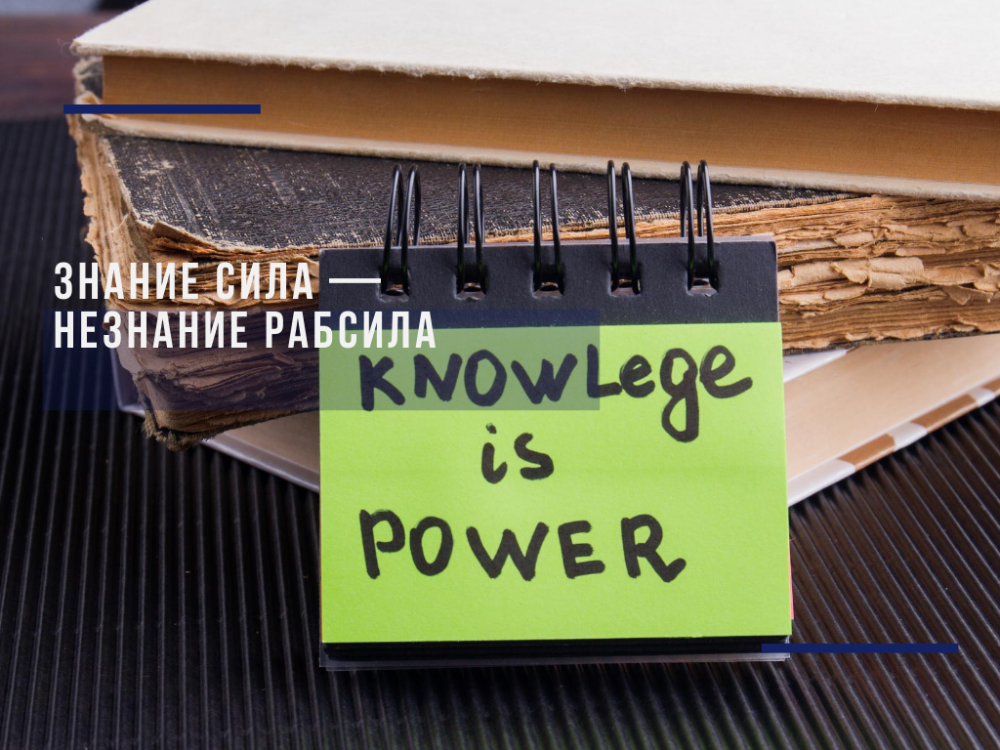 ЗНАНИЕ СИЛА —
НЕЗНАНИЕ РАБСИЛА
KNOWLege
is
POWER